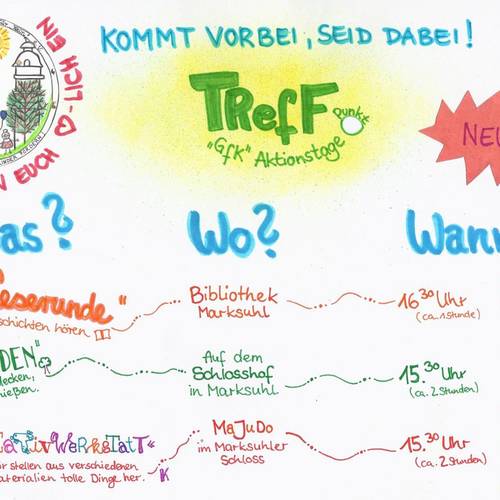 KOMMT VORBEI, SEID DABEI!
LICH EIN
EUCH
TReFF
punkt
"GfK" Aktionstage
NEU
as?
Wo?
Wann
eserunde"
schichten hören.
Bibliothek
Marksuhl
16³⁰ Uhr
(ca. 1 Stunde)
DEN"
decken,
ießen.
Auf dem
Schlosshof
in Marksuhl
15.³⁰ Uhr
(ca. 2 Stunden)
eaTivWeRkStaTT"
ir stellen aus verschiedenen
aterialien tolle Dinge her.
MaJuDo
im Marksuhler
Schloss
15.³⁰ Uhr
(ca. 2 Stunden)